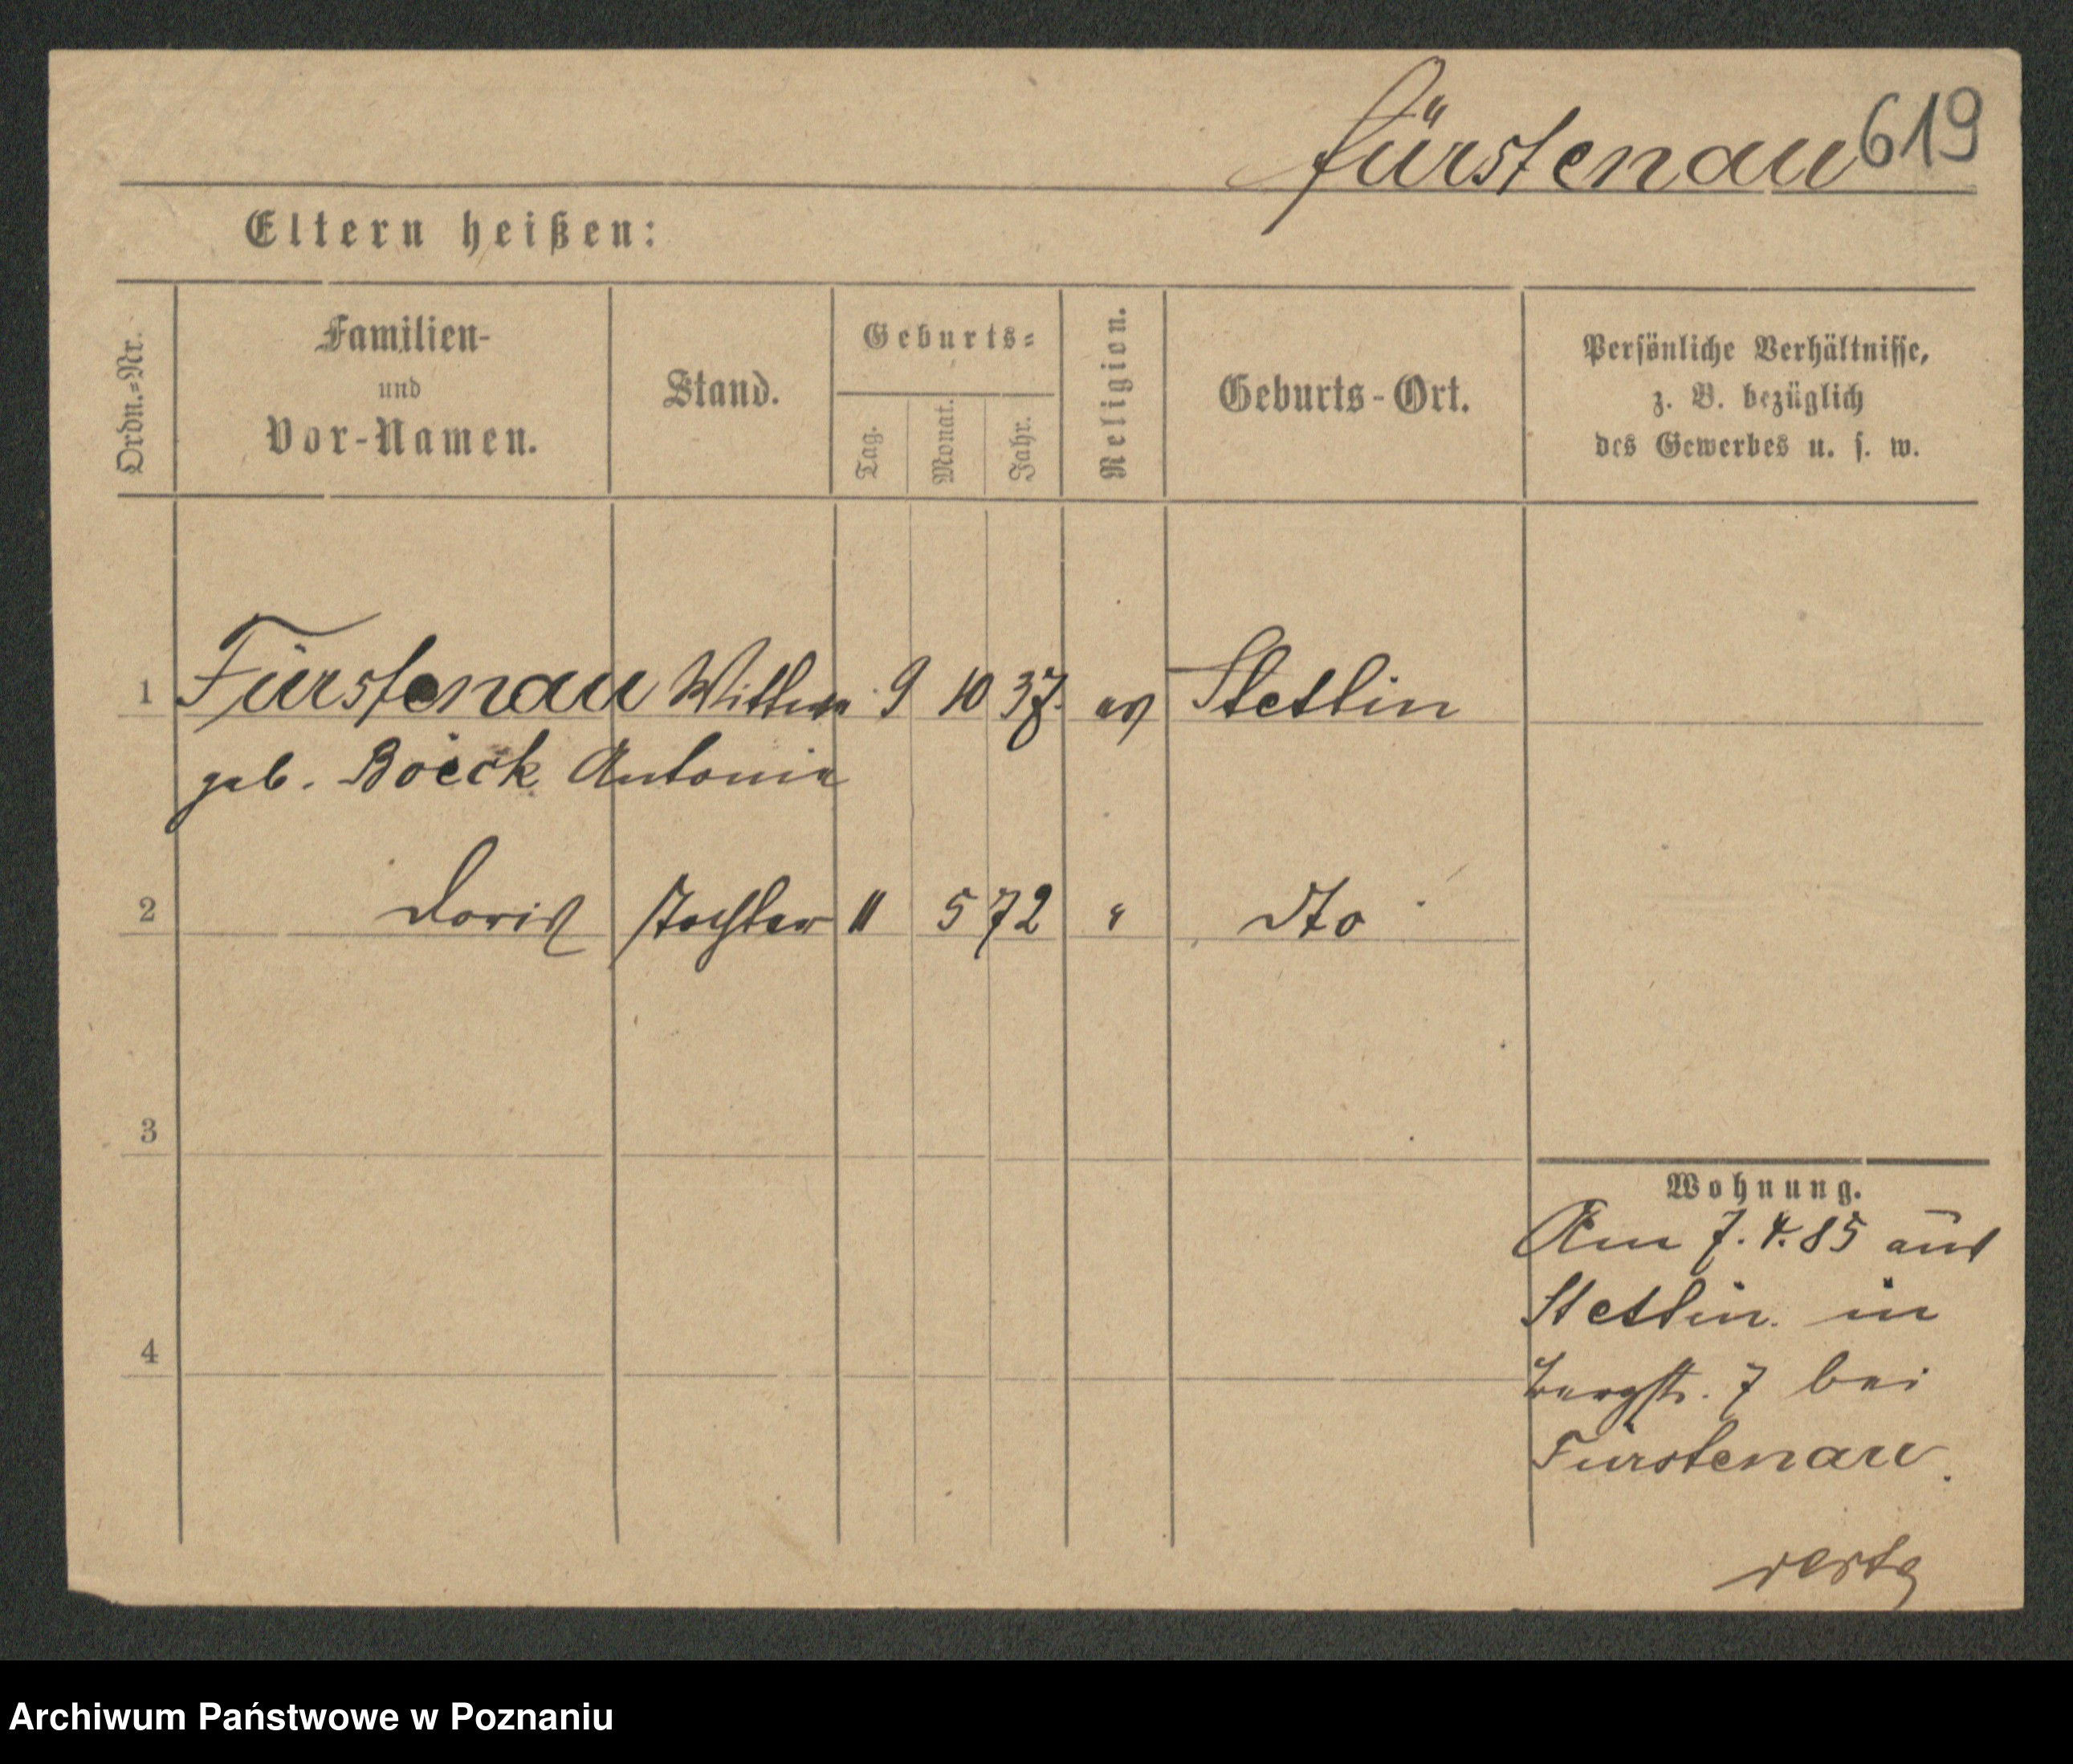 Fürstenau 619
Eltern heißen:
Ordn.=Nr.
Familien-
und
Vor-Namen.
Stand.
Geburts=
Tag.
Monat.
Jahr.
Religion.
Geburts-Ort.
Persönliche Verhältnisse,
z. B. bezüglich
des Gewerbes u. s. w.
1 Fürstenau Wittwe 9 10 37. ev Stettin
geb. Boeck Antonie
2 Doris Tochter 11 5 72 " dto
3
4
Wohnung.
Am 7. 4. 85 aus
Stettin in
Bergstr. 7 bei
Fürstenau.
Archiwum Państwowe w Poznaniu